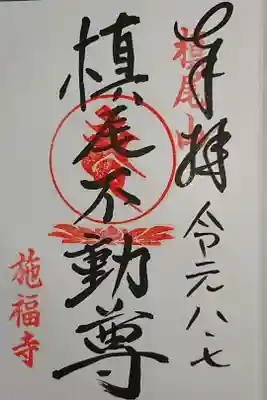 奉拝
槙尾山
令元八、七
槙尾不動尊
施福寺